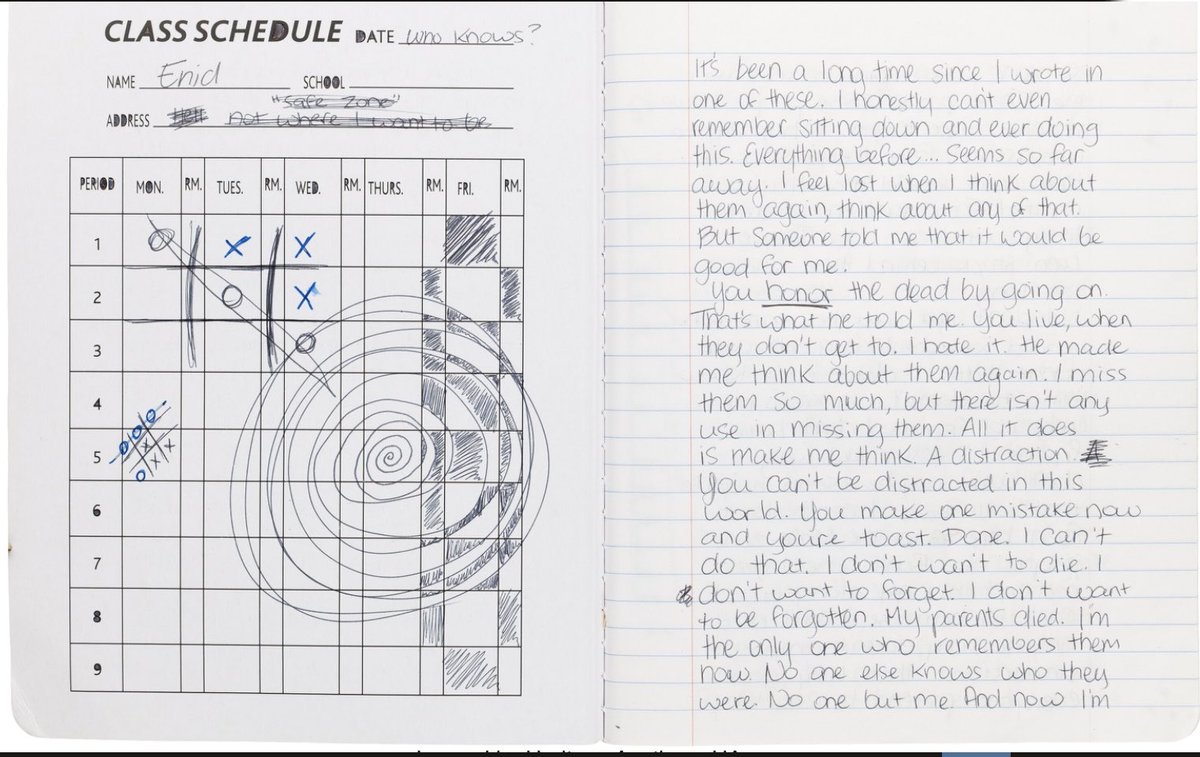 CLASS SCHEDULE DATE who knows?
NAME Enid SCHOOL
"safe zone"
ADDRESS Not where I want to be
PERIOD MON. RM. TUES. RM. WED. RM. THURS. RM. FRI. RM.
1
2
3
4
5
6
7
8
9
It's been a long time since I wrote in
one of these. I honestly can't even
remember sitting down and ever doing
this. Everything before... seems so far
away. I feel lost when I think about
them again, think about any of that.
But someone told me that it would be
good for me.
You honor the dead by going on.
That's what he told me. You live, when
they don't get to. I hate it. He made
me think about them again. I miss
them so much, but there isn't any
use in missing them. All it does
is make me think. A distraction.
You can't be distracted in this
world. You make one mistake now
and you're toast. Done. I can't
do that. I don't want to die. I
don't want to forget. I don't want
to be forgotten. My parents died. I'm
the only one who remembers them
now. No one else knows who they
were. No one but me. And now I'm